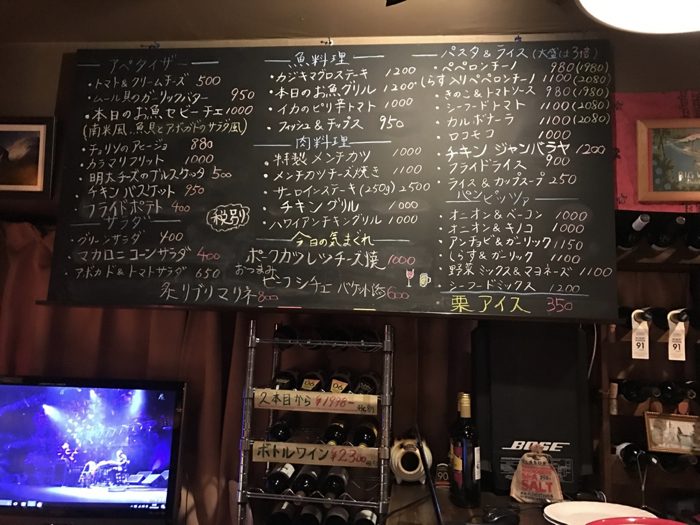 アペタイザー
・トマト&クリームチーズ 500
・ムール貝のガーリックバター 950
・本日のお魚セビーチェ 1000
(南米風、魚貝とアボカドのサラダ風)
・チョリソのアヒージョ 880
・カラマリフリット 1000
・明太チーズのブルスケッタ 500
・チキンバスケット 950
・フライドポテト 400
サラダ
・グリーンサラダ 400
・マカロニコーンサラダ 400
・アボカド&トマトサラダ 650
税別
魚料理
・カジキマグロステーキ 1200
・本日のお魚グリル 1200
・イカのピリ辛トマト 1000
・フィッシュ&チップス 950
肉料理
・特製メンチカツ 1000
・メンチカツチーズ焼き 1100
・サーロインステーキ(250g) 2500
・チキングリル 1000
・ハワイアンチキングリル 1000
今日の気まぐれ
ポークカツレツチーズ焼 1000
おつまみ
ビーフシチュー バケット添 600
炙りブリマリネ 800
パスタ&ライス (大盛は3倍)
・ペペロンチーノ 980 (1980)
・しらす入りペペロンチーノ 1100 (2080)
・きのこ&トマトソース 980 (1980)
・シーフードトマト 1100 (2080)
・カルボナーラ 1100 (2080)
・ロコモコ 1000
・チキンジャンバラヤ 1200
・フライドライス 900
・ライス&カップスープ 250
パンピッツァ
・オニオン&ベーコン 1000
・オニオン&キノコ 1000
・アンチョビ&ガーリック 1150
・しらす&ガーリック 1100
・野菜ミックス&マヨネーズ 1100
・シーフードミックス 1200
栗アイス 350
2本目から ¥1998- 税別
ボトルワイン ¥2300
BOSE
SALT
90
91
91